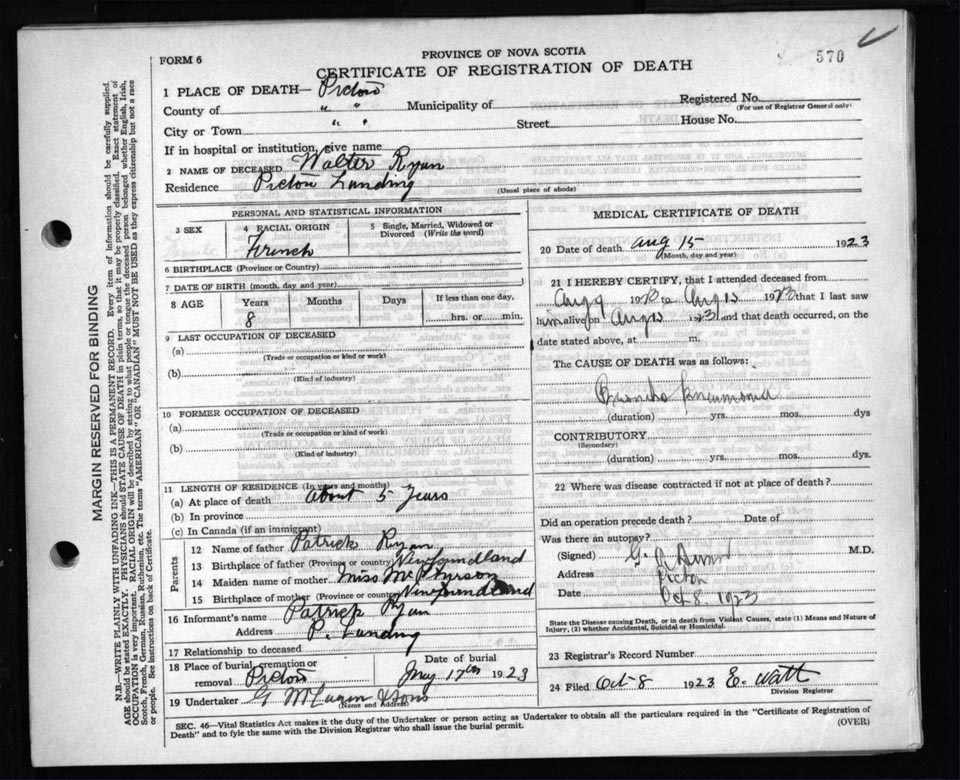 570
FORM 6
PROVINCE OF NOVA SCOTIA
CERTIFICATE OF REGISTRATION OF DEATH
1 PLACE OF DEATH— Pictou
County of " " Municipality of Registered No.
(For use of Registrar General only)
City or Town " " Street House No.
If in hospital or institution, give name
2 NAME OF DECEASED Walter Ryan
Residence Pictou Landing (Usual place of abode)
PERSONAL AND STATISTICAL INFORMATION
3 SEX 4 RACIAL ORIGIN 5 Single, Married, Widowed or Divorced (Write the word)
French
6 BIRTHPLACE (Province or Country)
7 DATE OF BIRTH (month, day and year)
8 AGE Years Months Days If less than one day,
8 hrs. or min.
9 LAST OCCUPATION OF DECEASED
(a)
(Trade or occupation or kind or work)
(b)
(Kind of industry)
10 FORMER OCCUPATION OF DECEASED
(a)
(Trade or occupation or kind of work)
(b)
(Kind of industry)
11 LENGTH OF RESIDENCE (In years and months)
(a) At place of death About 5 Years
(b) In province
(c) In Canada (if an immigrant)
Parents
12 Name of father Patrick Ryan
13 Birthplace of father (Province or country) Newfoundland
14 Maiden name of mother Miss McPherson
15 Birthplace of mother (Province or country) Newfoundland
16 Informant's name Patrick Ryan
Address P. Landing
17 Relationship to deceased
18 Place of burial, cremation or removal Pictou
Date of burial
17th 1923
19 Undertaker G & Sons
(Name and Address)
MEDICAL CERTIFICATE OF DEATH
20 Date of death Aug 15 1923
(Month, day and year)
21 I HEREBY CERTIFY, that I attended deceased from
Aug 9 192 to Aug 15 1923 that I last saw
him alive on Aug 1923 and that death occurred, on the
date stated above, at m.
The CAUSE OF DEATH was as follows:
Broncho pneumonia
(duration) yrs. mos. dys
CONTRIBUTORY
(Secondary)
(duration) yrs. mos. dys
22 Where was disease contracted if not at place of death?
Did an operation precede death? Date of
Was there an autopsy?
(Signed) G. A. M.D.
Address Pictou
Date Oct 8. 1923
State the Disease causing Death, or in death from Violent Causes, state (1) Means and Nature of Injury, (2) whether Accidental, Suicidal or Homicidal.
23 Registrar's Record Number
24 Filed Oct 8 1923 E. Watt
Division Registrar
SEC. 46—Vital Statistics Act makes it the duty of the Undertaker or person acting as Undertaker to obtain all the particulars required in the "Certificate of Registration of
Death" and to fyle the same with the Division Registrar who shall issue the burial permit.
(OVER)
MARGIN RESERVED FOR BINDING
N.B.—WRITE PLAINLY WITH UNFADING INK—THIS IS A PERMANENT RECORD. Every item of information should be carefully supplied.
AGE should be stated EXACTLY. PHYSICIANS should STATE CAUSE OF DEATH in plain terms, so that it may be properly classified. Exact statement of
OCCUPATION is very important. RACIAL ORIGIN will be described by stating to what people or tongue the deceased person belonged whether English, Irish,
Scotch, French, German, Russian, Ruthenian, etc. The terms "AMERICAN" OR "CANADIAN" MUST NOT BE USED as they express citizenship but not a race
or people. See instructions on back of Certificate.